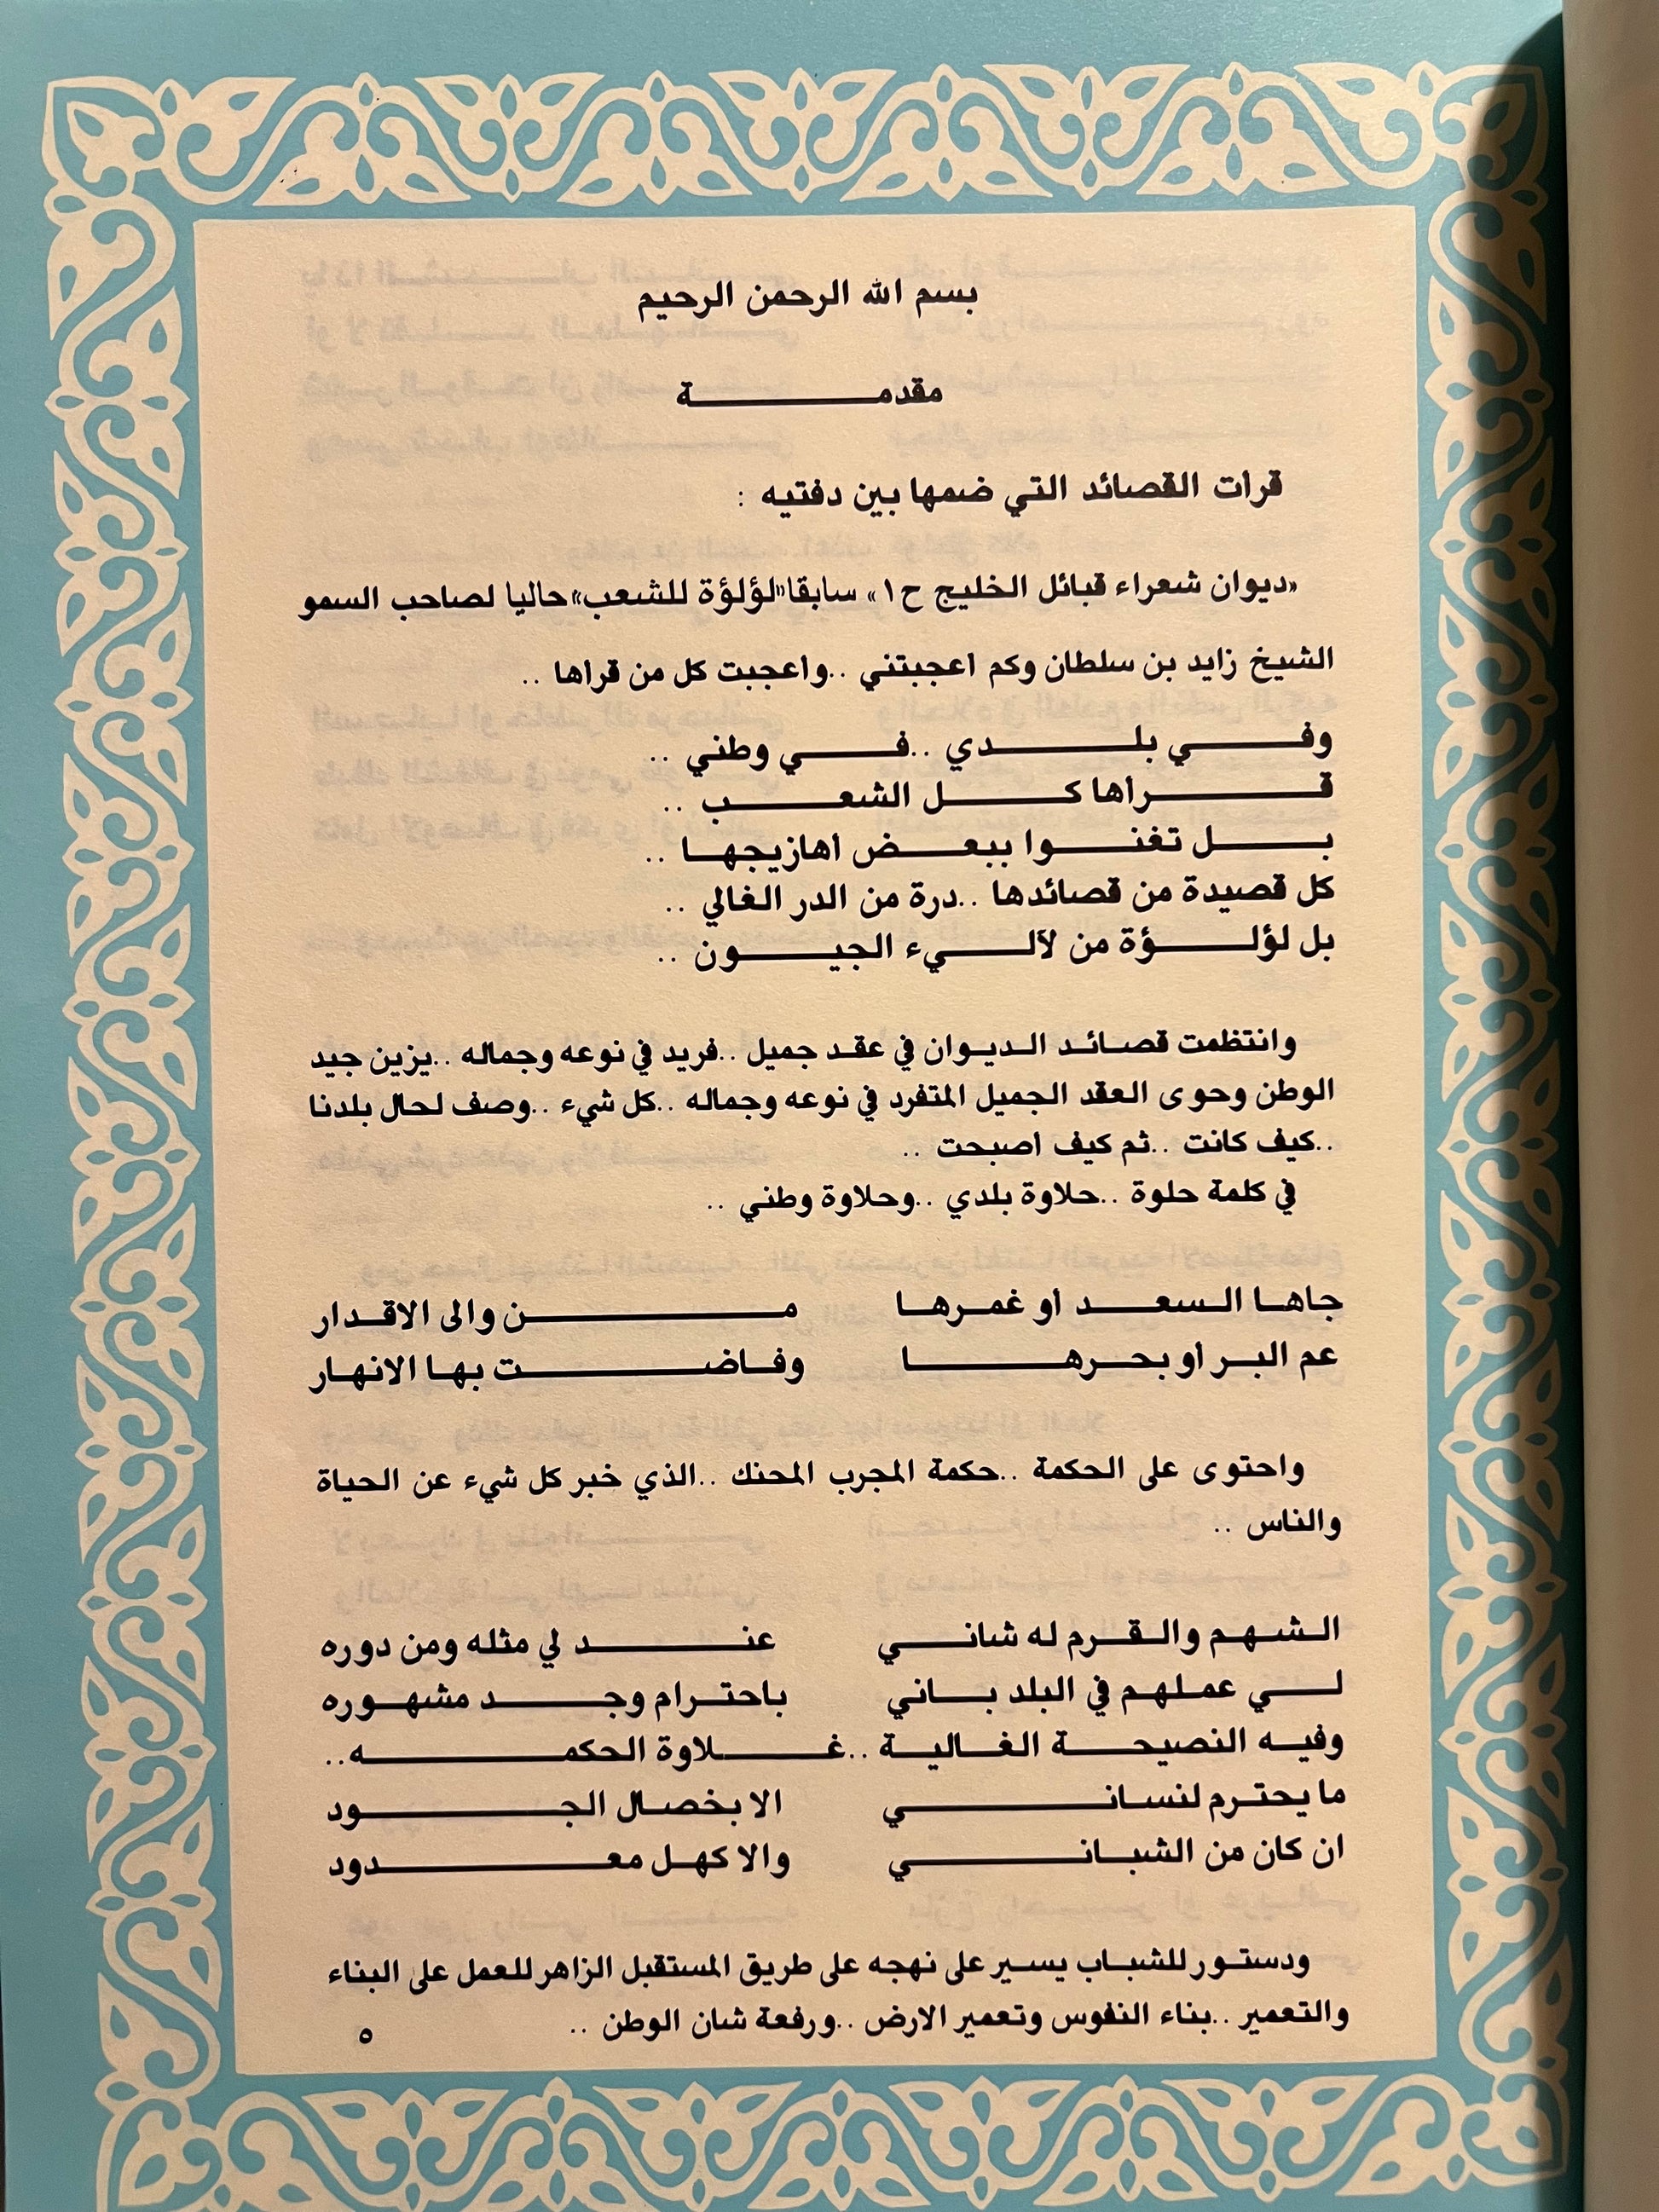 بسم الله الرحمن الرحيم
مقدمة
قرأت القصائد التي ضمها بين دفتيه :
«ديوان شعراء قبائل الخليج ح١» سابقا «لؤلؤة للشعب» حاليا لصاحب السمو
الشيخ زايد بن سلطان وكم اعجبتني .. واعجبت كل من قرأها ..
وفي بلدي .. في وطني ..
قرأها كل الشعب ..
بل تغنوا ببعض اهازيجها ..
كل قصيدة من قصائدها .. درة من الدر الغالي ..
بل لؤلؤة من لآليء الجيون ..
وانتظمت قصائد الديوان في عقد جميل .. فريد في نوعه وجماله .. يزين جيد
الوطن وحوى العقد الجميل المتفرد في نوعه وجماله .. كل شيء .. وصف لحال بلدنا
.. كيف كانت .. ثم كيف اصبحت ..
في كلمة حلوة .. حلاوة بلدي .. وحلاوة وطني ..
جاها السعد أو غمرها من والى الاقدار
عم البر أو بحرها وفاضت بها الانهار
واحتوى على الحكمة .. حكمة المجرب المحنك .. الذي خبر كل شيء عن الحياة
والناس ..
الشهم والقرم له شاني عند لي مثله ومن دوره
لي عملهم في البلد باني باحترام وجد مشهوره
وفيه النصيحة الغالية .. غلاوة الحكمه ..
ما يحترم لنساني الا بخصال الجود
ان كان من الشباني والا كهل معدود
ودستور للشباب يسير على نهجه على طريق المستقبل الزاهر للعمل على البناء
والتعمير .. بناء النفوس وتعمير الارض .. ورفعة شان الوطن ..
٥